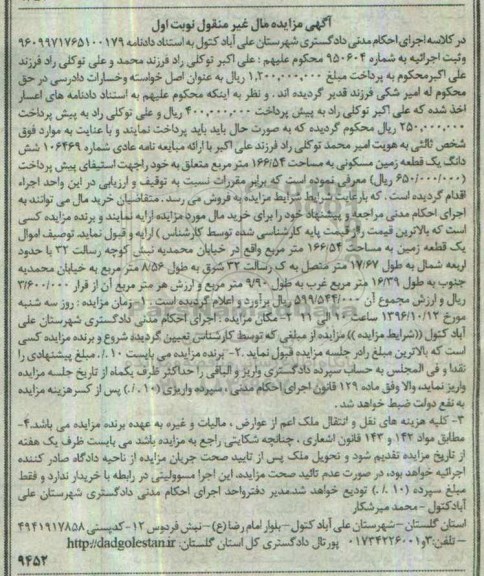 آگهی مزایده مال غیر منقول نوبت اول
در کلاسه اجرای احکام مدنی دادگستری شهرستان علی آباد کتول به استناد دادنامه ۹۶۰۹۹۷۱۷۶۵۱۰۰۱۷۹
وثبت اجرائیه به شماره ۹۵۰۶۰۴ محکوم علیهم : علی اکبر توکلی راد فرزند محمد و علی توکلی راد فرزند
علی اکبرمحکوم به پرداخت مبلغ ۱,۲۰۰,۰۰۰,۰۰۰ ریال به عنوان اصل خواسته وخسارات دادرسی در حق
محکوم له امیر شکی فرزند قدیر گردیده اند . و نظر به اینکه محکوم علیهم به استناد دادنامه های اعسار
اخذ شده که علی اکبر توکلی راد به پیش پرداخت ۴۰۰,۰۰۰,۰۰۰ ریال و علی توکلی راد به پیش پرداخت
۲۵۰,۰۰۰,۰۰۰ ریال محکوم گردیده که به صورت حال باید باید پرداخت نمایند و با عنایت به موارد فوق
شخص ثالثی به هویت امیر محمد توکلی راد فرزند علی اکبر با ارائه مبایعه نامه عادی شماره ۱۰۶۴۶۹ شش
دانگ یک قطعه زمین مسکونی به مساحت ۱۶۶/۵۴ متر مربع متعلق به خود راجهت استیفای پیش پرداخت
(۶۵۰/۰۰۰/۰۰۰ ریال) معرفی نموده است که برابر مقررات نسبت به توقیف و ارزیابی در این واحد اجراء
اقدام گردیده است . که بارعایت شرایط شرایط مزایده به فروش می رسد . متقاضیان خرید مال می توانند به
اجرای احکام مدنی مراجعه و پیشنهاد خود را برای خرید مال مورد مزایده ارایه نمایند و برنده مزایده کسی
است که بالاترین قیمت را(قیمت پایه کارشناسی شده توسط کارشناس) ارایه و قبول نماید. توصیف اموال
یک قطعه زمین به مساحت ۱۶۶/۵۴ متر مربع واقع در خیابان محمدیه نبش کوچه رسالت ۳۲ با حدود
اربعه شمال به طول ۱۷/۶۷ متر متصل به ک رسالت ۳۲ شرق به طول ۸/۵۶ متر مربع به خیابان محمدیه
جنوب به طول ۱۶/۳۹ متر غرب به طول ۹/۹۰ متر مربع و ارزش هر متر مربع آن از قرار ۳/۶۰۰/۰۰۰
ریال و ارزش مجموع آن ۵۹۹/۵۴۴/۰۰۰ ریال برآورد و اعلام گردیده است . ۱- زمان مزایده : روز سه شنبه
مورخ ۱۳۹۶/۱۰/۱۲ ساعت ۱۰ الی ۱۱ ۲- مکان مزایده : اجرای احکام مدنی دادگستری شهرستان علی
آباد کتول ((شرایط مزایده )) مزایده از مبلغی که توسط کارشناس تعیین گردیده شروع و برنده مزایده کسی
است که بالاترین مبلغ رادر جلسه مزایده قبول نماید .۲- برنده مزایده می بایست ۱۰٪ مبلغ پیشنهادی را
نقدا و فی المجلس به حساب سپرده دادگستری واریز و الباقی را حداکثر ظرف یکماه از تاریخ جلسه مزایده
واریز نماید، والا وفق ماده ۱۲۹ قانون اجرای احکام مدنی ، سپرده واریزی (۱۰٪) پس از کسر هزینه مزایده
به نفع دولت ضبط خواهد شد .
۳- کلیه هزینه های نقل و انتقال ملک اعم از عوارض ، مالیات و غیره به عهده برنده مزایده می باشد.۴-
مطابق مواد ۱۴۲ و ۱۴۳ قانون اشعاری ، چنانچه شکایتی راجع به مزایده باشد می بایست ظرف یک هفته
از تاریخ مزایده تقدیم شود و تحویل ملک پس از تایید صحت جریان مزایده از ناحیه دادگاه صادر کننده
اجرائیه خواهد بود، در صورت عدم تائید صحت مزایده، این اجرا مسوولیتی در رابطه با خریدار ندارد و فقط
مبلغ سپرده (۱۰٪) تودیع خواهد شد.مدیر دفترواحد اجرای احکام مدنی دادگستری شهرستان علی
آبادکتول – محمد میرشکار
استان گلستان – شهرستان علی آباد کتول – بلوار امام رضا (ع) – نبش فردوس ۱۲ – کدپستی ۴۹۴۱۹۱۷۸۵۸
– تلفن: ۳و۰۱۷۳۴۲۲۶۰۰۱ پورتال دادگستری کل استان گلستان: http://dadgolestan.ir
۹۴۵۲